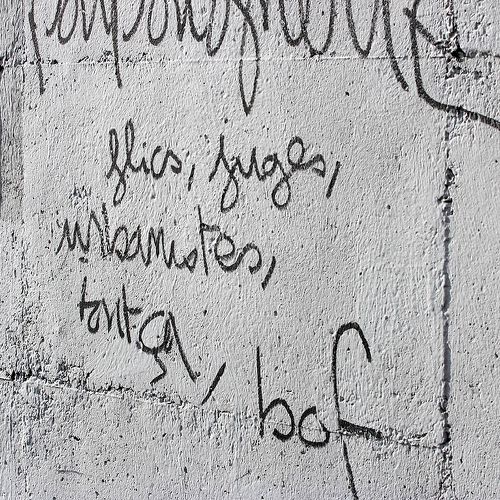 flics, juges,
urbanistes,
tout ça, bof